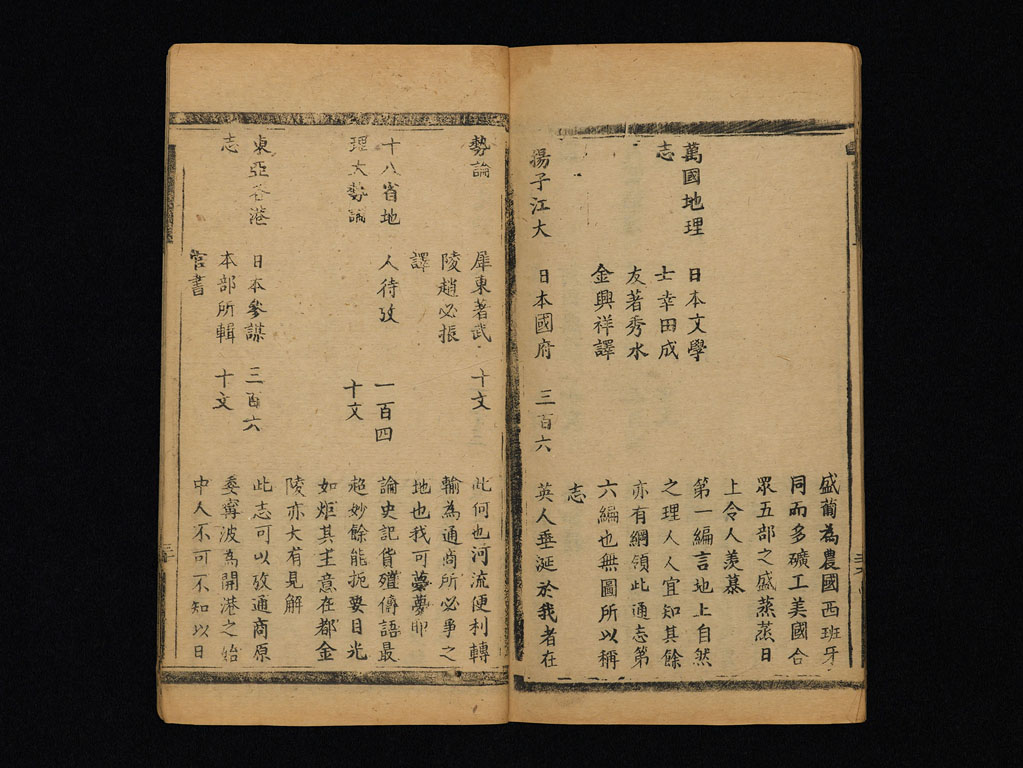 盛葡為農國西班牙
同而多礦工美國合
眾五部之盛蒸蒸日
上令人羨慕
萬國地理 日本文學 第一編言地上自然
志 士幸田成 之理人人宜知其餘
友著秀水 亦有綱領此通志第
金興祥譯 六編也無圖所以稱
志
揚子江大 日本國府 三百六 英人垂涎於我者在
勢論 犀東著武 十文 此何也河流便利轉
陵趙必振 輸為通商所必爭之
譯 地也我可夢夢耶
十八省地 人待攷 一百四 論史記貨殖傳語最
理大勢論 十文 超妙餘能扼要目光
如炬其主意在都金
陵亦大有見解
東亞各港 日本參謀 三百六 此志可以攷通商原
志 本部所輯 十文 委寗波為開港之始
官書 中人不可不知以日